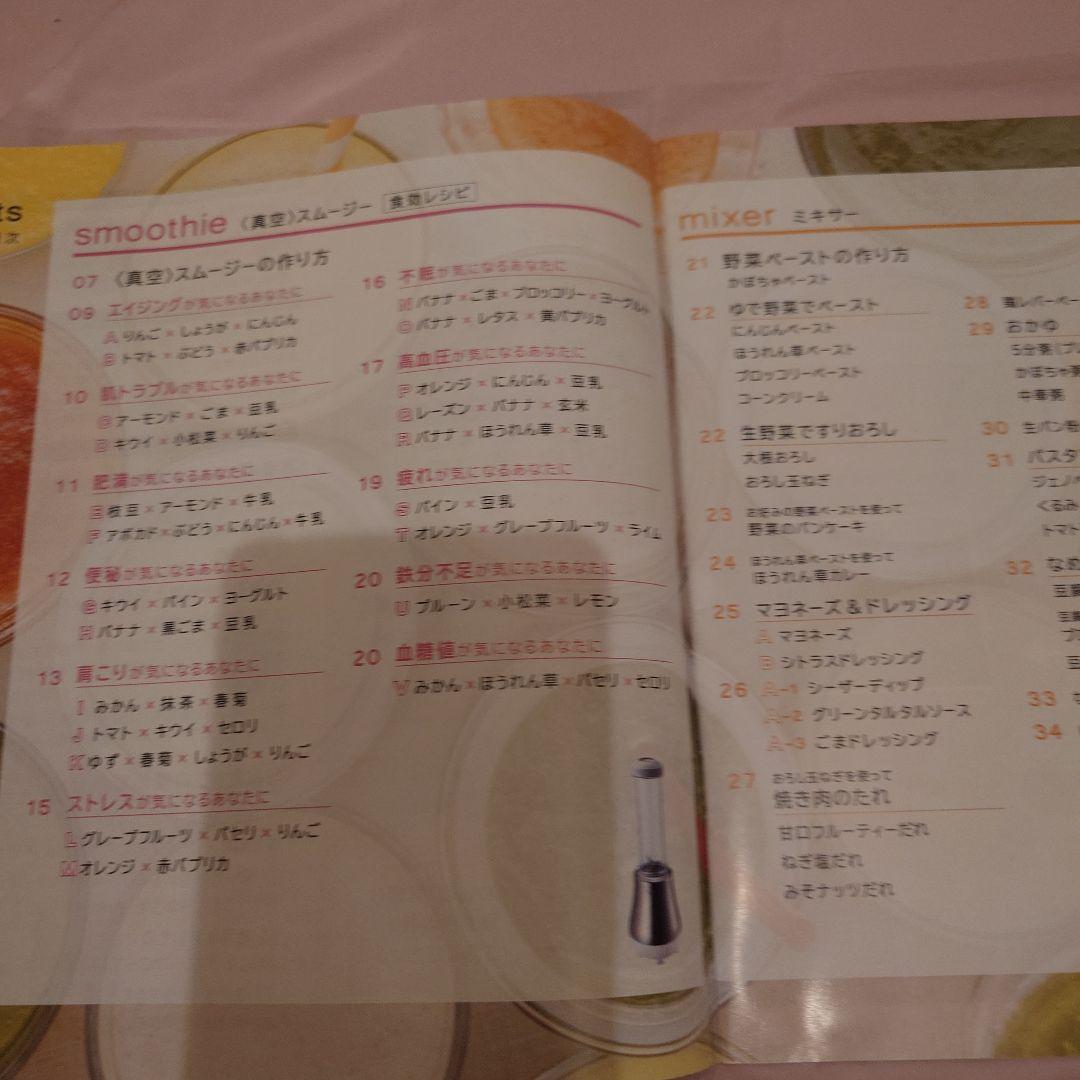 ts
次
smoothie 〈真空〉スムージー 食効レシピ
07 〈真空〉スムージーの作り方
09 エイジングが気になるあなたに
A りんご×しょうが×にんじん
B トマト×ぶどう×赤パプリカ
10 肌トラブルが気になるあなたに
C アーモンド×ごま×豆乳
D キウイ×小松菜×りんご
11 肥満が気になるあなたに
E 枝豆×アーモンド×牛乳
F アボカド×ぶどう×にんじん×牛乳
12 便秘が気になるあなたに
G キウイ×パイン×ヨーグルト
H バナナ×黒ごま×豆乳
13 肩こりが気になるあなたに
I みかん×抹茶×春菊
J トマト×キウイ×セロリ
K ゆず×春菊×しょうが×りんご
15 ストレスが気になるあなたに
L グレープフルーツ×パセリ×りんご
M オレンジ×赤パプリカ
16 不眠が気になるあなたに
N バナナ×ごま×ブロッコリー×ヨーグルト
O バナナ×レタス×黄パプリカ
17 高血圧が気になるあなたに
P オレンジ×にんじん×豆乳
Q レーズン×バナナ×玄米
R バナナ×ほうれん草×豆乳
19 疲れが気になるあなたに
S パイン×豆乳
T オレンジ×グレープフルーツ×ライム
20 鉄分不足が気になるあなたに
U プルーン×小松菜×レモン
20 血糖値が気になるあなたに
V みかん×ほうれん草×パセリ×セロリ
mixer ミキサー
21 野菜ペーストの作り方
かぼちゃペースト
22 ゆで野菜でペースト
にんじんペースト
ほうれん草ペースト
ブロッコリーペースト
コーンクリーム
22 生野菜ですりおろし
大根おろし
おろし玉ねぎ
23 お好みの野菜ペーストを使って
野菜のパンケーキ
24 ほうれん草ペーストを使って
ほうれん草カレー
25 マヨネーズ&ドレッシング
A マヨネーズ
B シトラスドレッシング
26 A-1 シーザーディップ
A-2 グリーンタルタルソース
A-3 ごまドレッシング
27 おろし玉ねぎを使って
焼き肉のたれ
甘口フルーティーだれ
ねぎ塩だれ
みそナッツだれ
28 鶏レバーペー
29 おかゆ
5分粥(プレ
かぼちゃ
中華粥
30 生パン粉
31 パスタ
ジェノベ
くるみ
トマト
32 なめ
豆腐
豆腐
豆
33
34